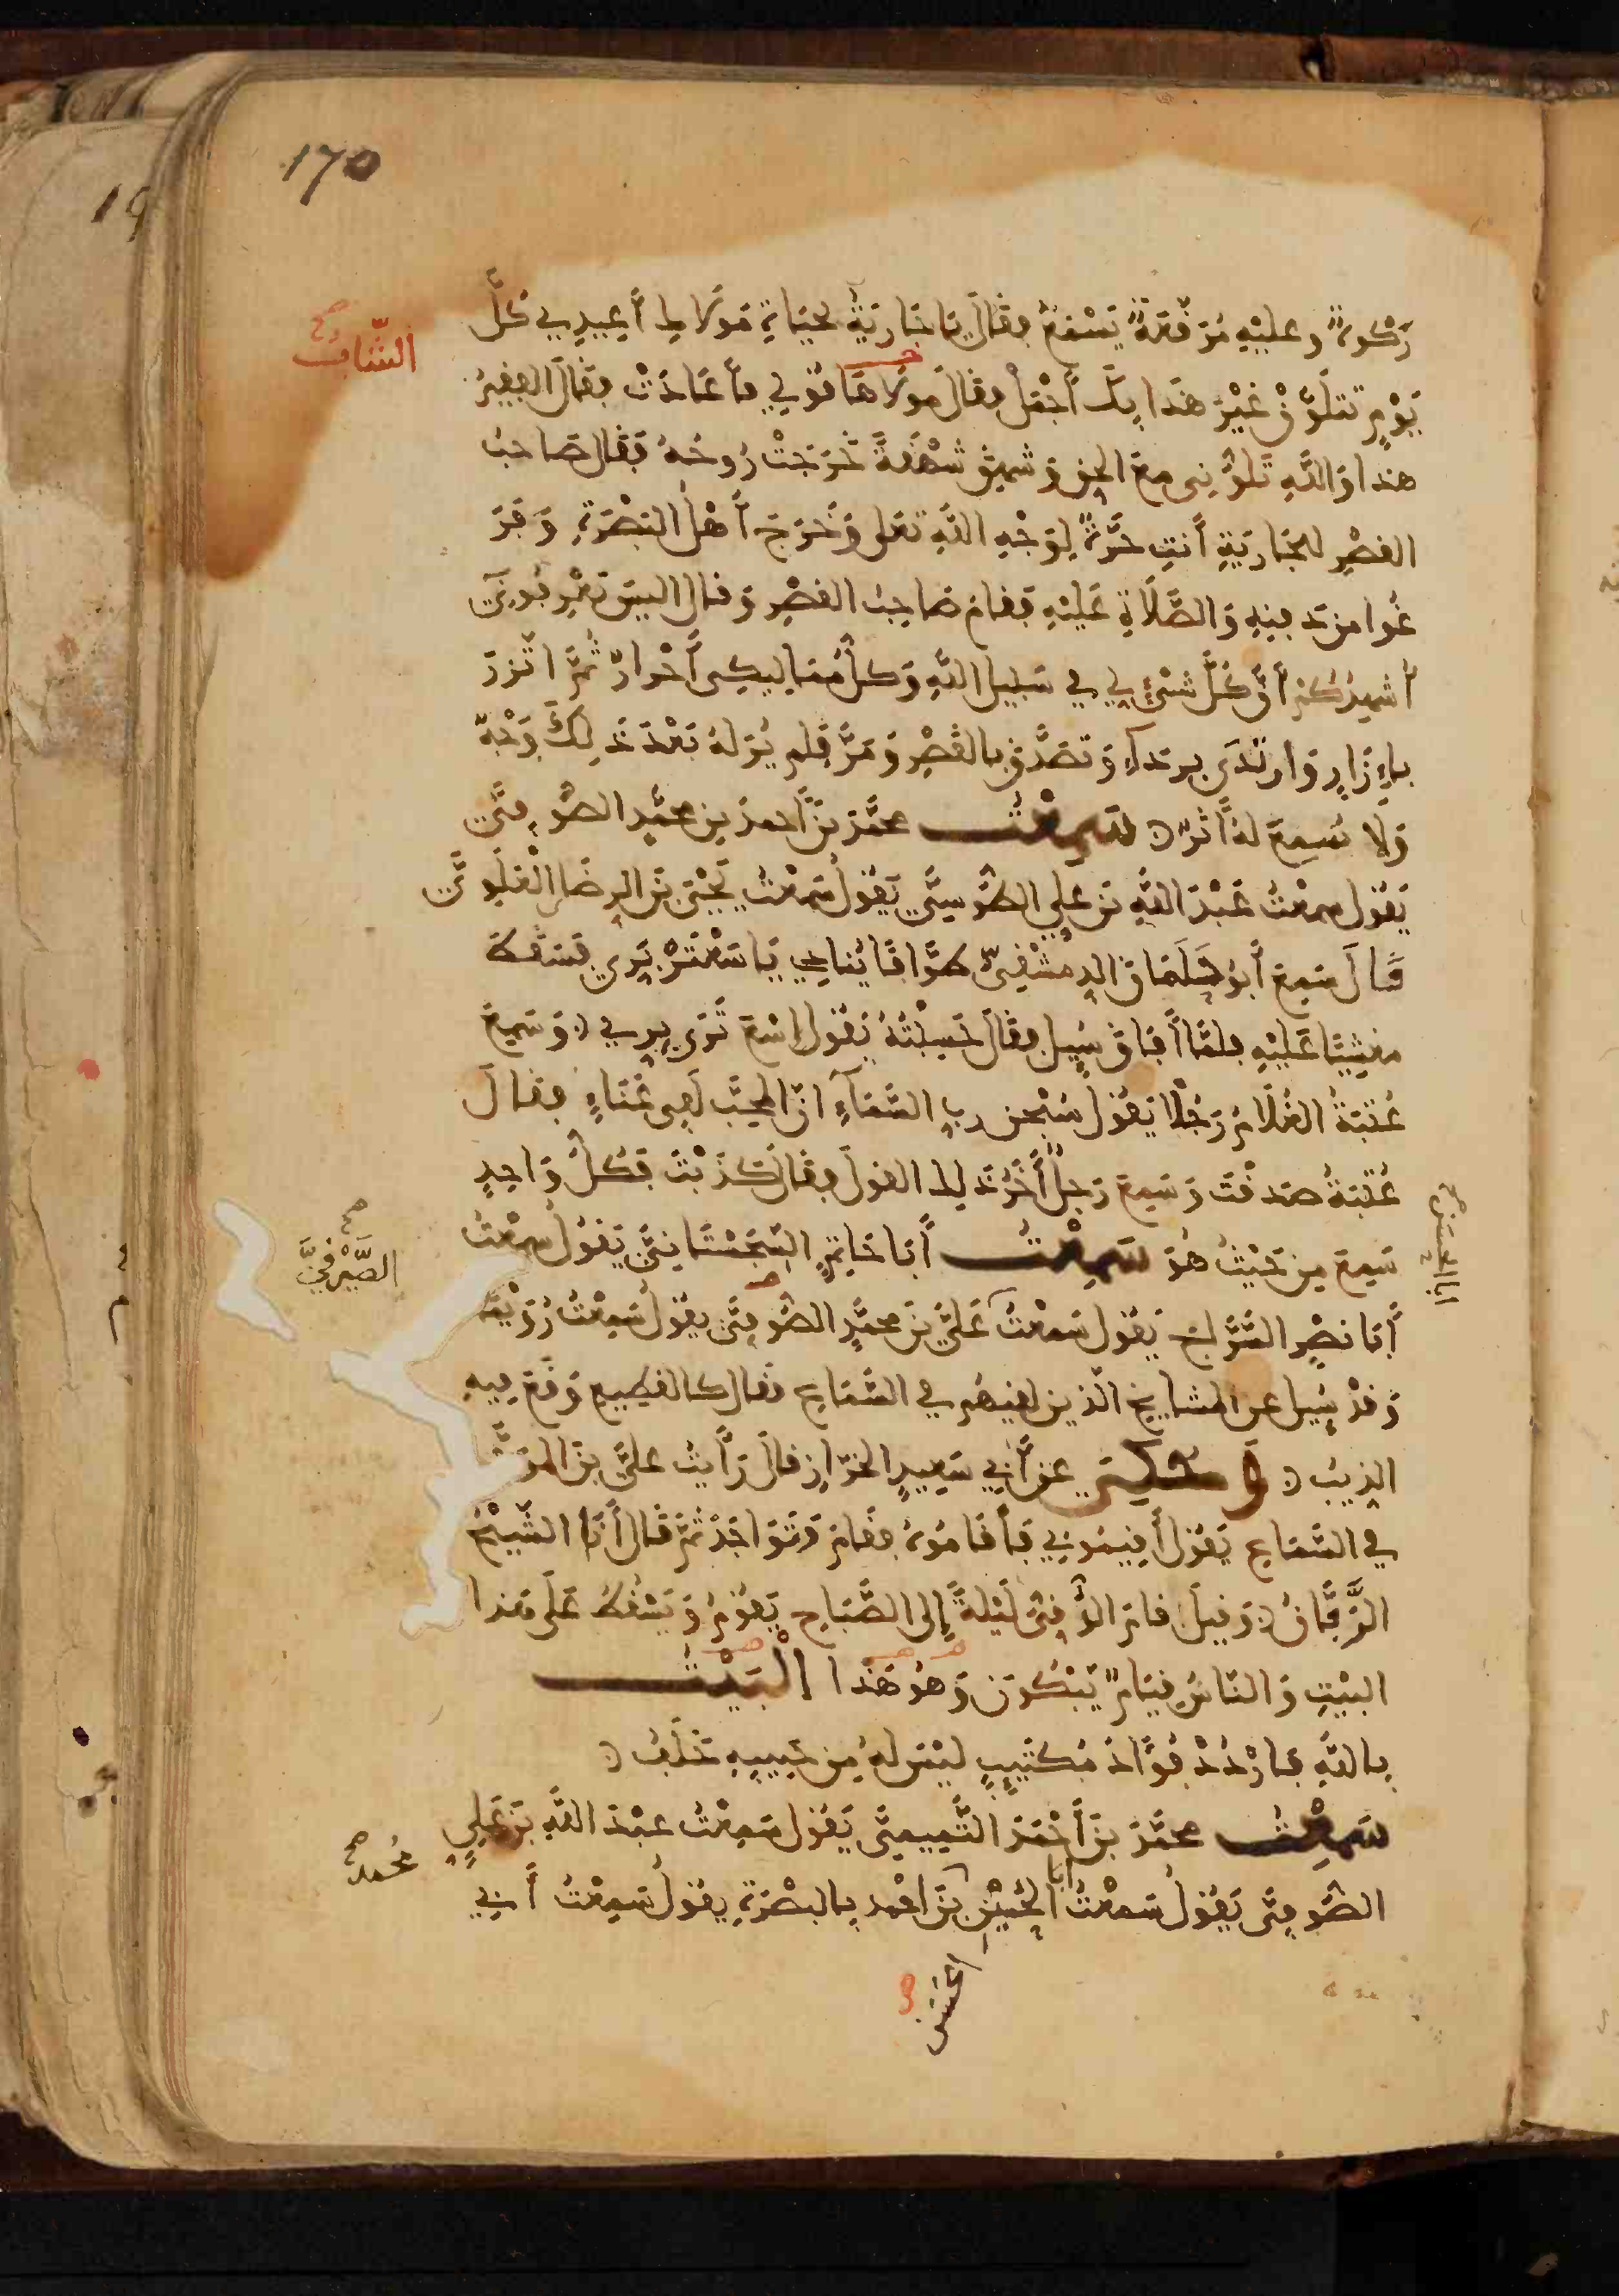 170
رَكْوةٌ وعليْهِ مُرَقّعَةٌ يَسْمَعُ فقَالَ يَا جَارِيَةُ بحَيَاةِ مَوْلَاكِ أعِيدِي كُلَّ
الشَّابُّ صح
يَوْمٍ تتلَوَّنْ غَيْرُ هَذَا بِكَ أجْمَلْ فقَالَ مَوْلَاهَا قُولِي فأعَادَتْ فقَالَ الفقِيرُ
هذا وَاللَّهِ تَلَوُّنِي مع الحق وَشهِقَ شَهْقَةً خَرَجَتْ رُوحُهُ فقَالَ صَاحبُ
القصْرِ للجَارِيَةِ أنتِ حُرَّةٌ لِوَجْهِ اللَّهِ تعلى وَخَرَجَ أهْلُ البَصْرَةِ وَفَرَ
غُوا من دفنِهِ وَالصَّلَاةِ عَلَيْهِ فقامَ صَاحِبُ القصْرِ وَقال اليسَ تعْرِفُونِي
أشهِدُكُمْ أنَّ كُلَّ شَيْءٍ لِي في سَبِيلِ اللَّهِ وَكلُّ مَمَالِيكِي أحْرارٌ ثُمَّ اتَّزرَ
بإِزَارٍ وَارتَدَى برداءٍ وَتصَدَّقَ بالقَصْرِ وَمَرَّ فلم يُرَ لهُ بَعْدَ ذَلِكَ وَجْهٌ
وَلا سُمِعَ لهُ أثَرٌ سَمِعْتُ محمَّدَ بْنَ أحمدَ بنِ محمّدٍ الصُّوفِيَّ
يَقُول سمعْتُ عَبْدَ اللَّهِ بنَ علي الطُّوسِيَّ يَقُولُ سَمِعْتُ يَحْيَى بنَ الرِضَا الْعَلَوِيَّ
قَالَ سَمِعَ أبُو سُلَيمَانَ الدِمشْقِيّ طَوَّافًا يُنادِي يَا سَعْتَرْ بَرِّي فسَقطَ
مغشِيًا عَلَيْهِ فلمَّا أفَاقَ سُيِل فقَالَ حَسِبْتُهُ يَقُولُ إسْعَ تَرَى بِرِي وَسَمِعَ
عُتْبَةُ الغُلَامُ رَجُلًا يَقُولُ سُبْحٰنَ رب السَّمَآءِ انّ المحِبَّ لَفِي عَنَاءٍ فقالَ
عُتْبَةُ صَدقْتَ وَسَمِعَ رَجلٌ أخَرُ ذَلِك القولَ فقَالَ كَذَبْتَ فكُلُّ وَاحِدٍ
سَمِعَ مِن حَيْثُ هُوَ سَمِعْتُ أبَا حَاتِمٍ السِّجِسْتَانِيَّ يَقُولُ سَمِعْتُ
الصَّيْرَفِيَّ صح
أبَا نصْرٍ السَّرَّاجَ يَقُول سَمِعْتُ عَليَّ بنَ محمَّدٍ الصُّوفِيَّ يقُول سَمِعْتُ رُوَيْمًا
وَقدْ سُيِل عن المشايِخ الّذين لقيَهُم في السَّمَاع فقَال كالقطِيع وَقَعَ فِيهِ
الذِيبُ وَحُكِيَ عن أبي سَعِيدٍ الخَرّازِ قالَ رَأيْتُ عليَّ بنَ المُوَفَّقِ
في السَّمَاع يَقُول أقِيمُونِي فأقَامُوهُ فقَامَ وَتَوَاجَدَ ثُمَّ قَال أنَا الشَّيْخُ
الزَّفَّانُ وَقيلَ قامَ الرَّقِّيُّ لَيْلَةً إلى الصَّبَاح يَقُومُ وَيَسْقُطُ عَلَى هَذا
البَيْتِ وَالنَّاسُ قِيَامٌ يَبْكُونَ وَهُوَ هَذَا الْبَيْتُ
بِاللَّهِ فارْدُدْ فُؤَادَ مُكتَيِبٍ ليْسَ لهُ مِن حَبِيبِهِ خَلَفُ
سَمِعْتُ محمَّدَ بنَ أحْمَدَ التَّمِيمِيَّ يَقُول سَمِعْتُ عبْدَ اللَّهِ بنَ عَلِيٍ
مُحمد صح
الصُّوفِيَّ يَقُولُ سَمِعْتُ أبا الحُسَيْنِ بنَ احْمد بالبصْرَةِ يقُول سَمِعْتُ أبِي